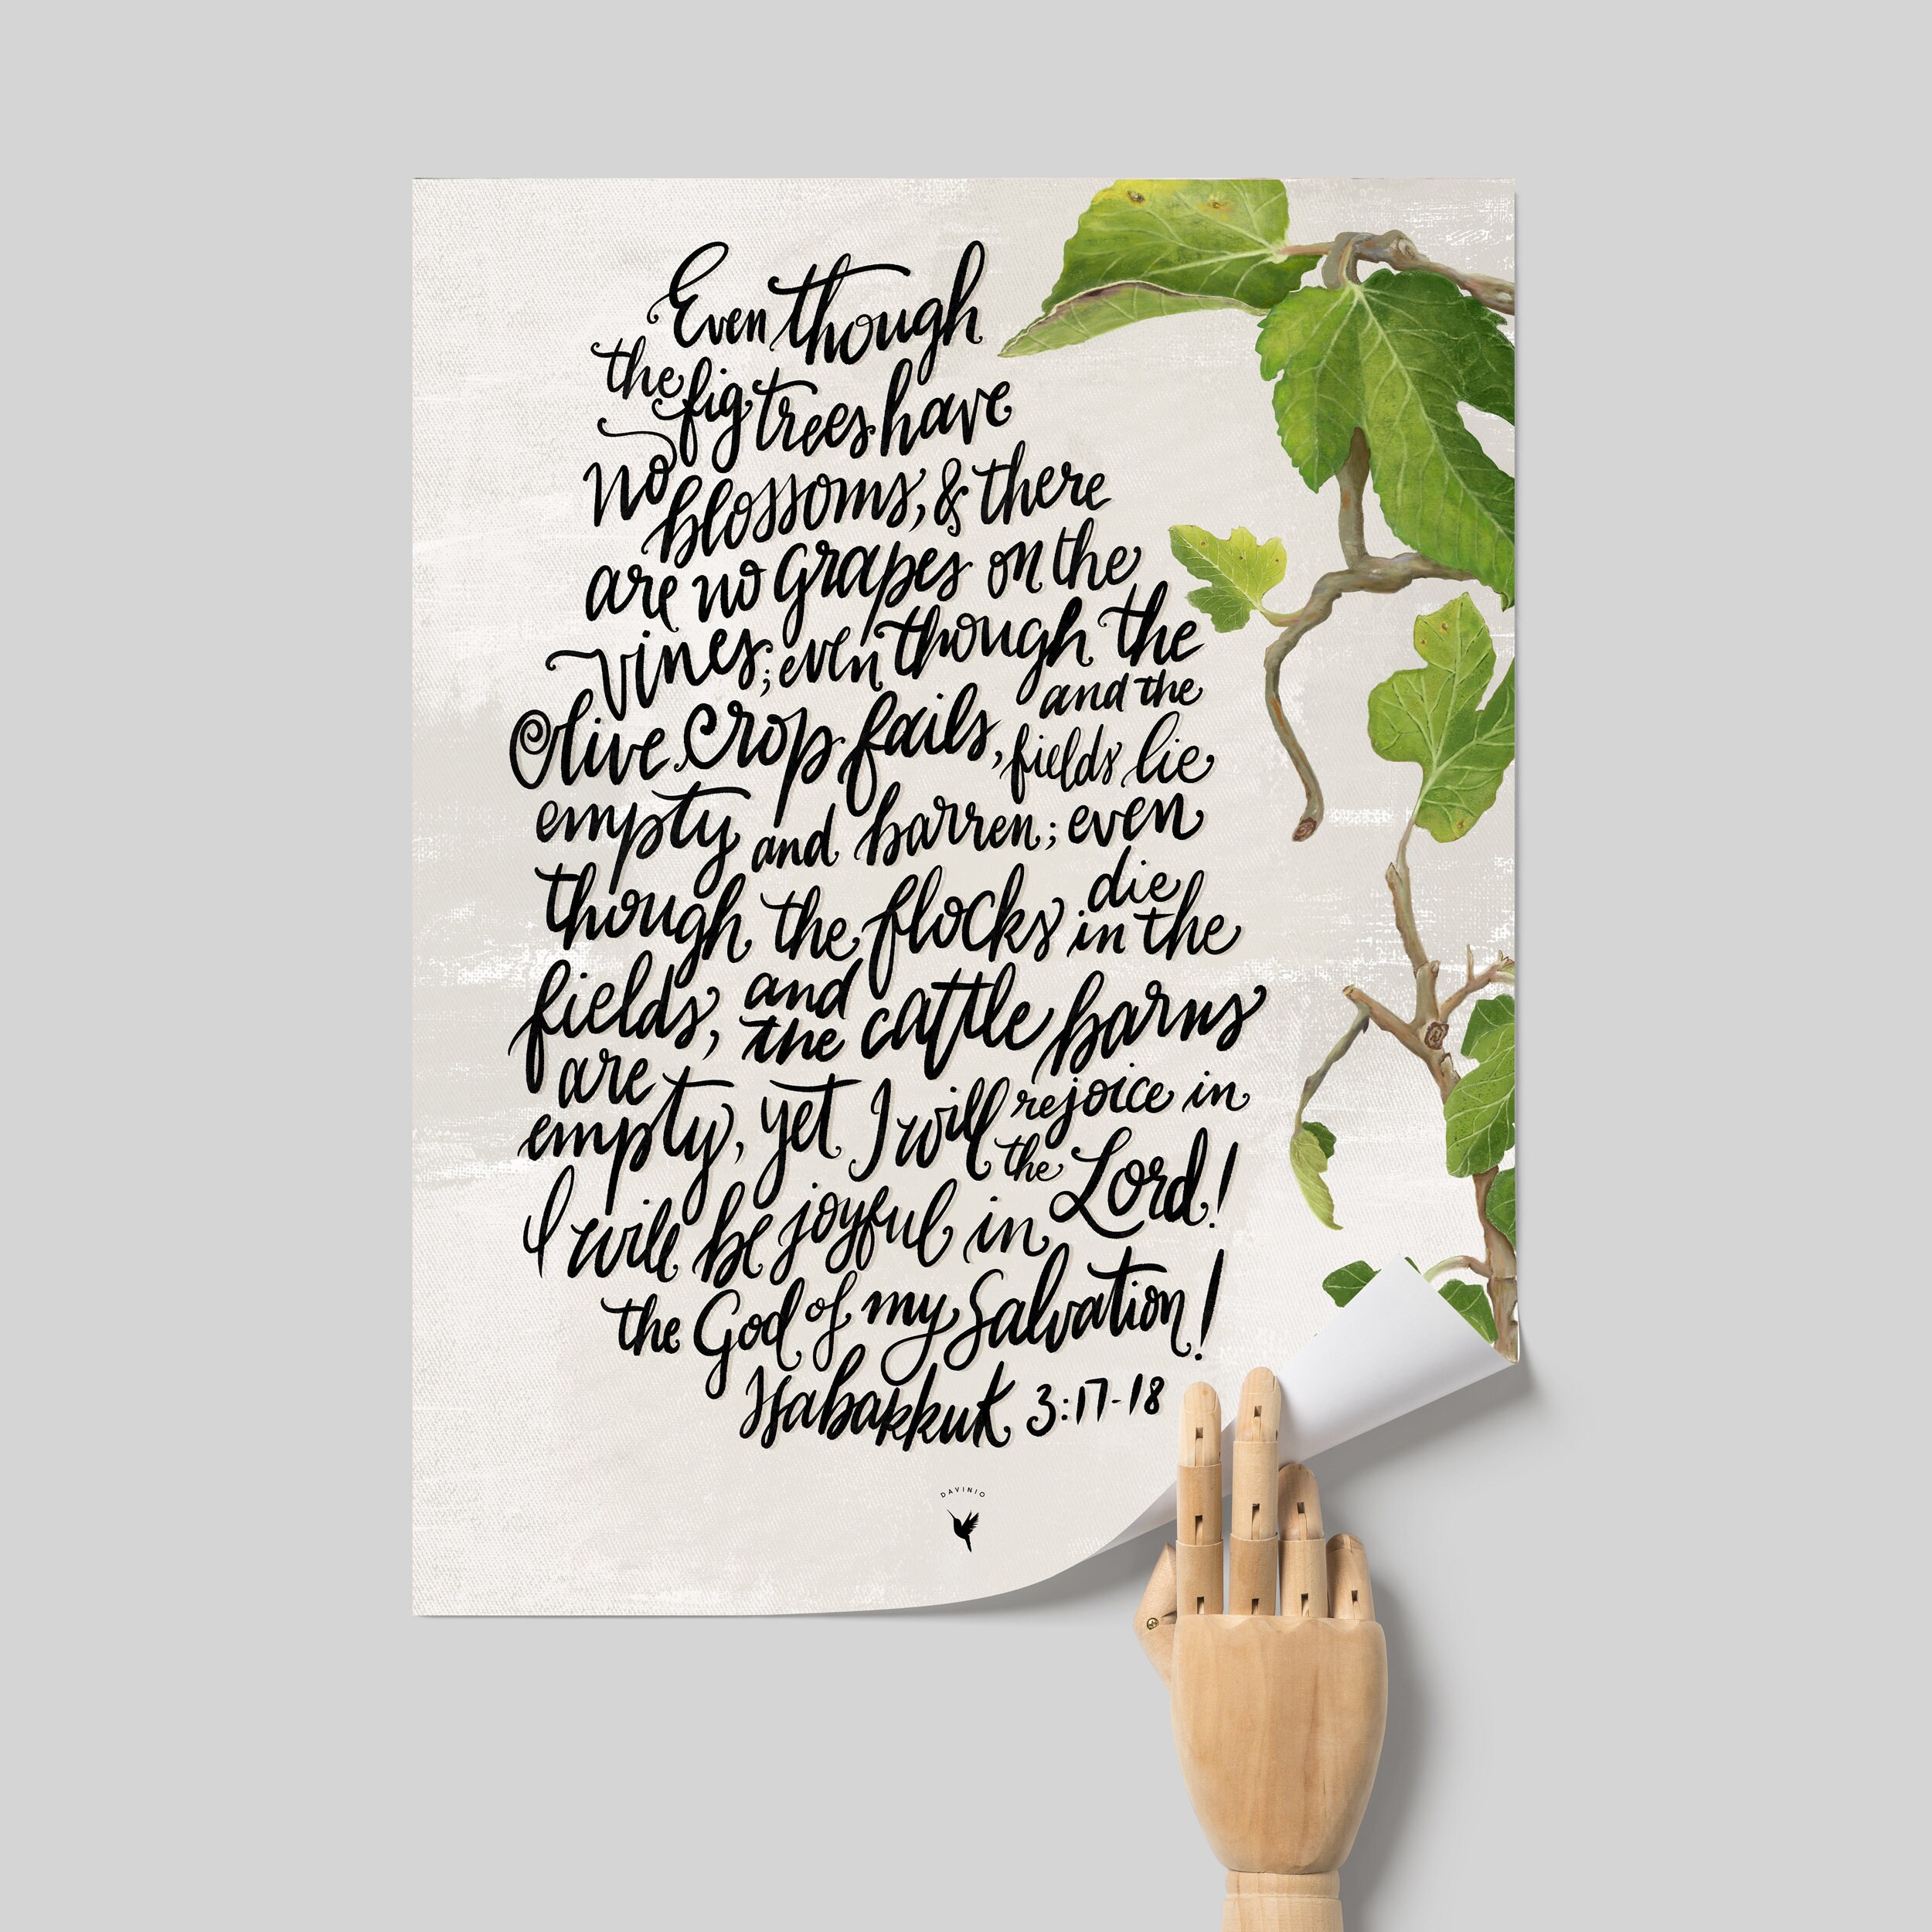 Even though
the fig trees have
no blossoms, & there
are no grapes on the
vines; even though the
olive crop fails, and the
fields lie
empty and barren; even
though the flocks die
in the
fields, and
the cattle barns
are
empty, yet I will rejoice in
the Lord!
I will be joyful in
the God of my Salvation!
Habakkuk 3:17-18
DAVINIO